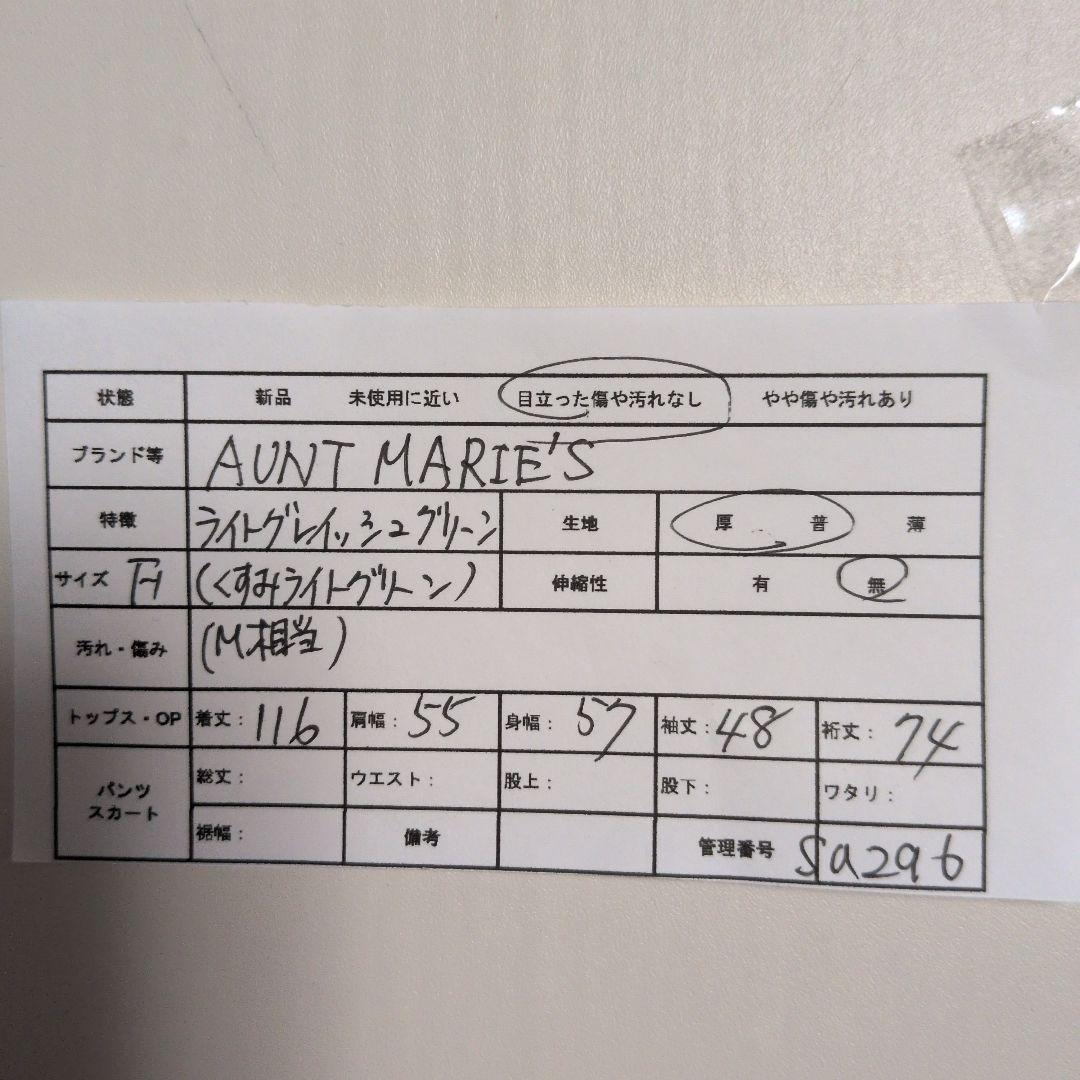 状態 新品 未使用に近い 目立った傷や汚れなし やや傷や汚れあり
ブランド等 AUNT MARIE'S
特徴 ライトグレイッシュグリーン 生地 厚 普 薄
サイズ (くすみライトグリーン) 伸縮性 有 無
汚れ・傷み (M相当)
トップス・OP 着丈:116 肩幅:55 身幅:57 袖丈:48 裄丈:74
パンツ スカート 総丈: ウエスト: 股上: 股下: ワタリ:
裾幅: 備考 管理番号 Sa296